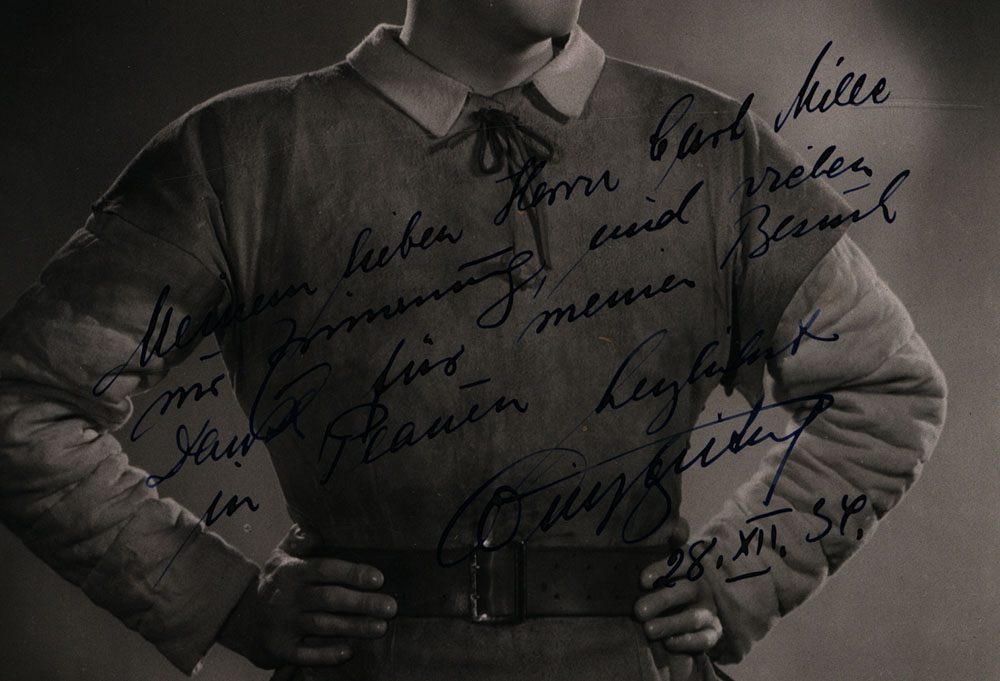 Meinem lieben Herrn Carl Mille
zur Erinnerung, und vielen
Dank für meinen Besuch
in Plauen herzlichst
28. XII. 34.